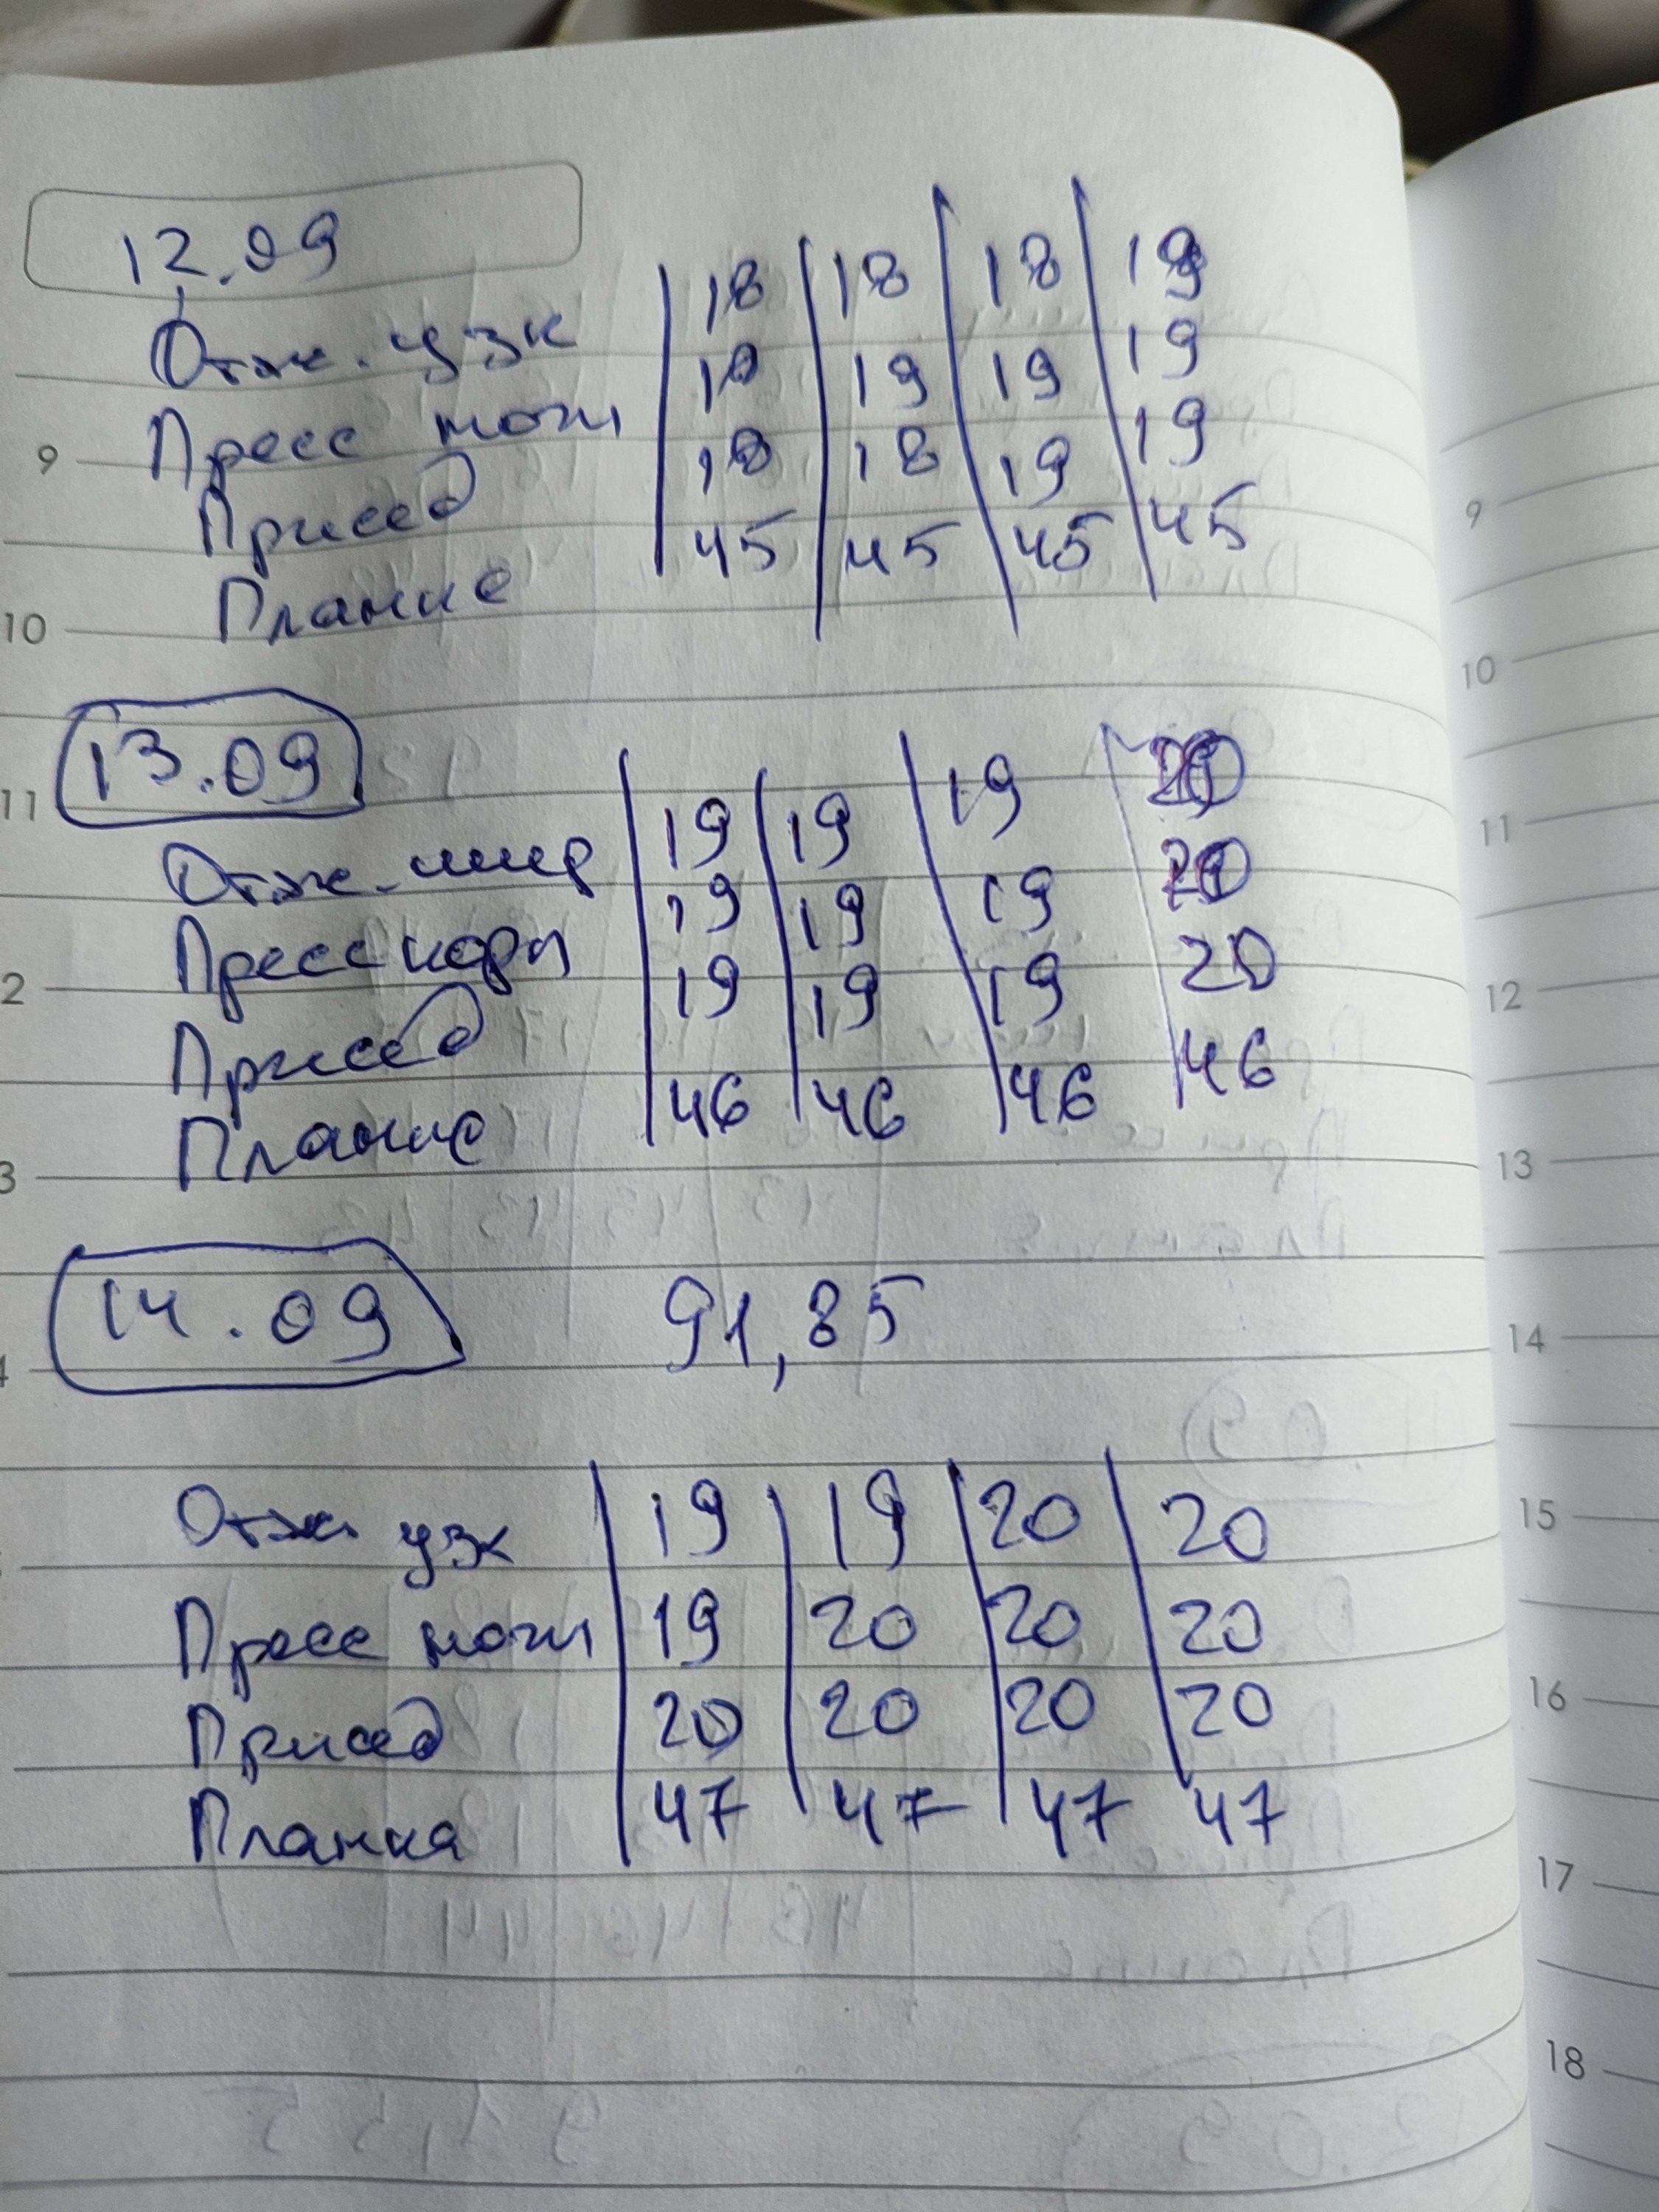 12.09
Отж. узк 18 18 18 19
Пресс ноги 18 19 19 19
Присед 18 18 19 19
Планка 45 45 45 45
13.09
Отж. шир 19 19 19 20
Пресс корп 19 19 19 20
Присед 19 19 19 20
Планка 46 46 46 46
14.09 91,85
Отж узк 19 19 20 20
Пресс ноги 19 20 20 20
Присед 20 20 20 20
Планка 47 47 47 47
9
10
11
2
3
4
9
10
11
12
13
14
15
16
17
18